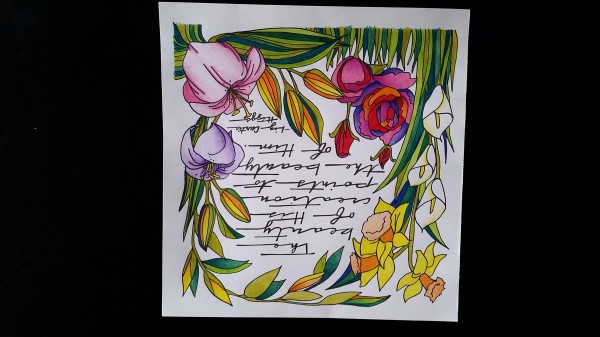 The
beauty
of His
creation
points to
the beauty
of Him